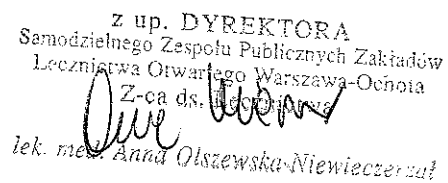 z up. DYREKTORA
Samodzielnego Zespołu Publicznych Zakładów
Lecznictwa Otwartego Warszawa-Ochota
Z-ca ds. Lecznictwa
lek. med. Anna Olszewska-Niewieczerzał